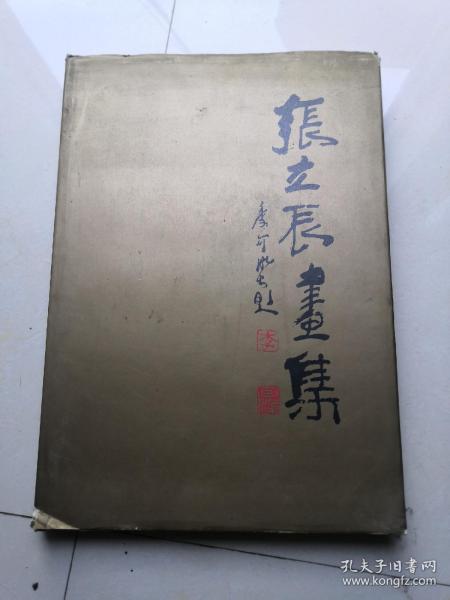 張立辰畫集
李可染題
孔夫子旧书网
www.kongfz.com